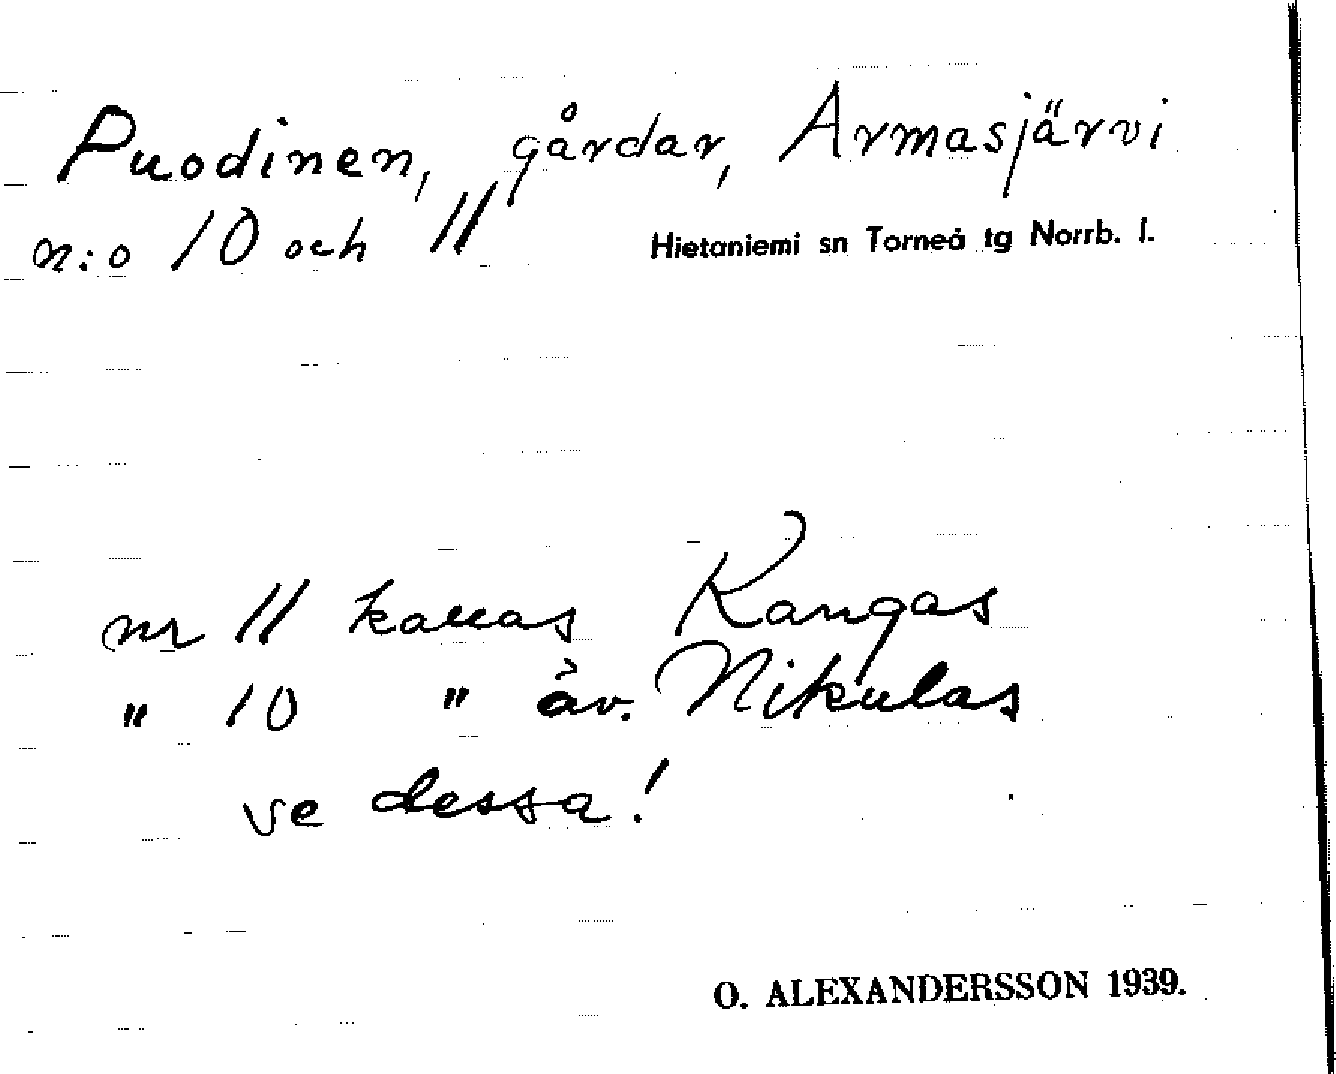 Puodinen, gårdar, Armasjärvi
n:o 10 och 11 Hietaniemi sn Torneå tg Norrb. l.
nr 11 kallas Kangas
" 10 " äv. Nikulas
se dessa!
O. ALEXANDERSSON 1939.